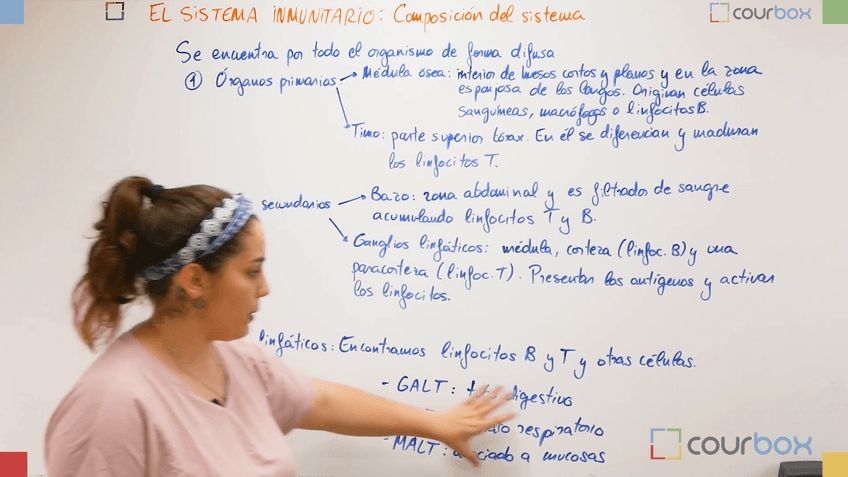 EL SISTEMA INMUNITARIO: Composición del sistema
courbox
Se encuentra por todo el organismo de forma difusa
① Órganos primarios → Médula ósea: interior de huesos cortos y planos y en la zona
esponjosa de los largos. Originan células
sanguíneas, macrófagos o linfocitos B.
Timo: parte superior tórax. En él se diferencian y maduran
los linfocitos T.
secundarios → Bazo: zona abdominal y es filtrador de sangre
acumulando linfocitos T y B.
Ganglios linfáticos: médula, corteza (linfoc. B) y una
paracorteza (linfoc. T). Presentan los antígenos y activan
los linfocitos.
linfáticos: Encontramos linfocitos B y T y otras células.
- GALT: digestivo
respiratorio
- MALT: asociado a mucosas
courbox